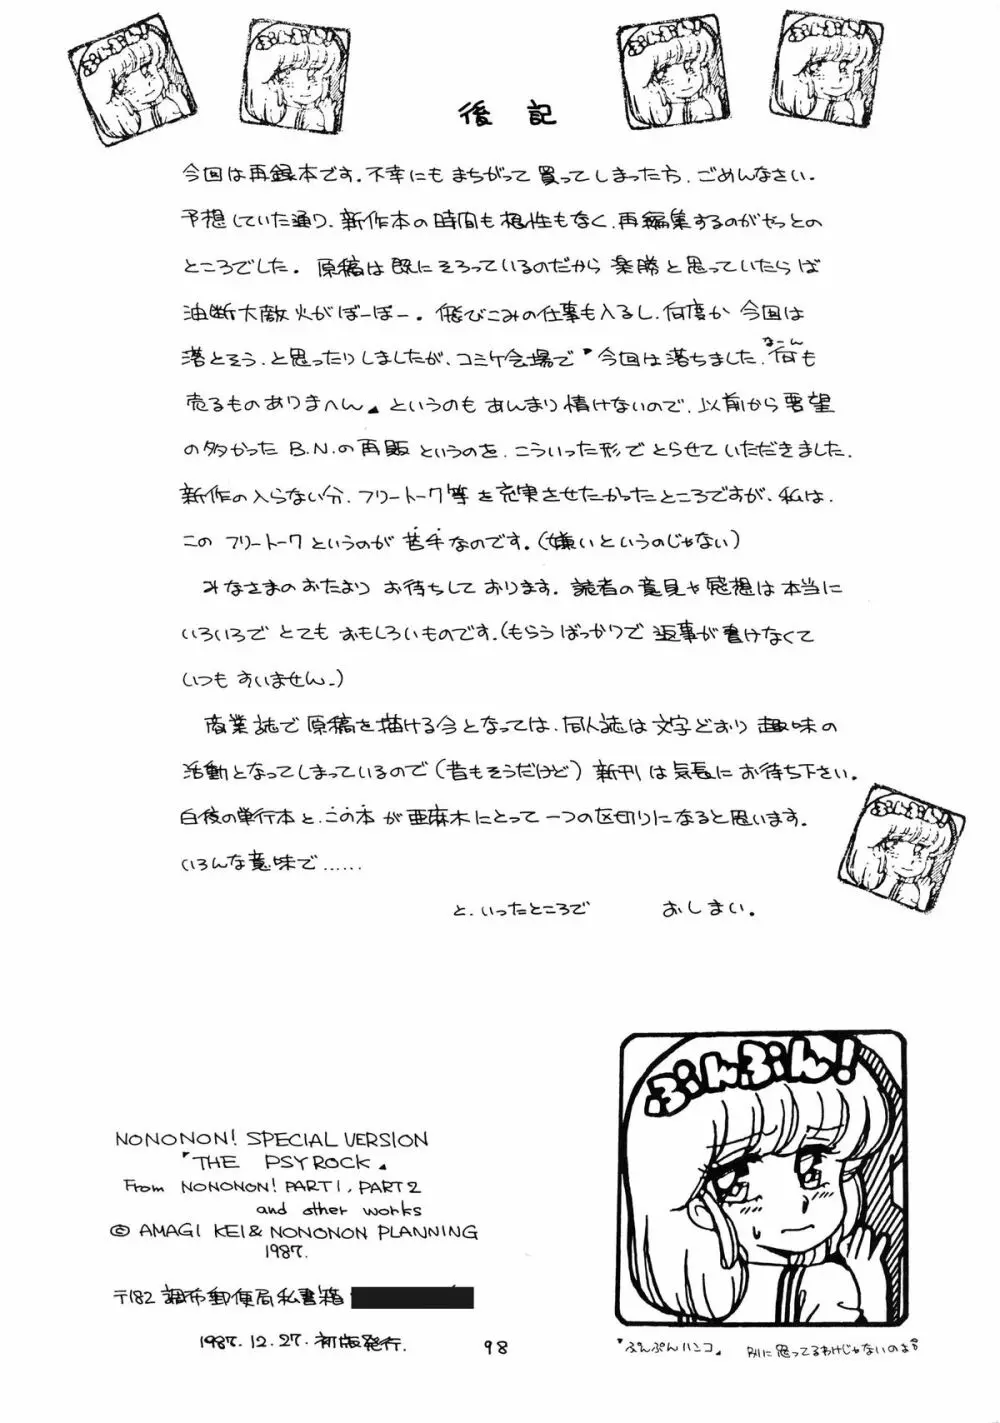 ぷんぷん!
ぷんぷん!
ぷんぷん!
ぷんぷん!
後記
今回は再録本です。不幸にもまちがって買ってしまった方、ごめんなさい。
予想していた通り、新作本の時間も根性もなく、再編集するのがやっとの
ところでした。原稿は既にそろっているのだから楽勝と思っていたらば
油断大敵火がぼーぼー。飛びこみの仕事も入るし、何度か今回は
落とそう、と思ったりしましたが、コミケ会場で『今回は落ちました。何も
なーん
売るものありまへん』というのもあんまり情けないので、以前から要望
の多かったB.N.の再販というのを、こういった形でとらせていただきました。
新作の入らない分、フリートーク等を充実させたかったところですが、私は、
このフリートークというのが苦手なのです。(嫌いというのじゃない)
みなさまのおたよりお待ちしております。読者の意見や感想は本当に
いろいろでとてもおもしろいものです。(もらうばっかりで返事が書けなくて
いつもすいません。)
商業誌で原稿を描ける今となっては、同人誌は文字どおり趣味の
活動となってしまっているので(昔もそうだけど)新刊は気長にお待ち下さい。
白夜の単行本と、この本が亜麻木にとって一つの区切りになると思います。
いろんな意味で……
と、いったところで おしまい。
ぷんぷん!
NONONON! SPECIAL VERSION
『THE PSYROCK』
From NONONON! PART1, PART2
and other works
© AMAGI KEI & NONONON PLANNING
1987.
〒182 調布郵便局私書箱
1987.12.27.初版発行.
98
ぷんぷん!
『ぷんぷんハンコ』 別に思ってるわけじゃないのよ